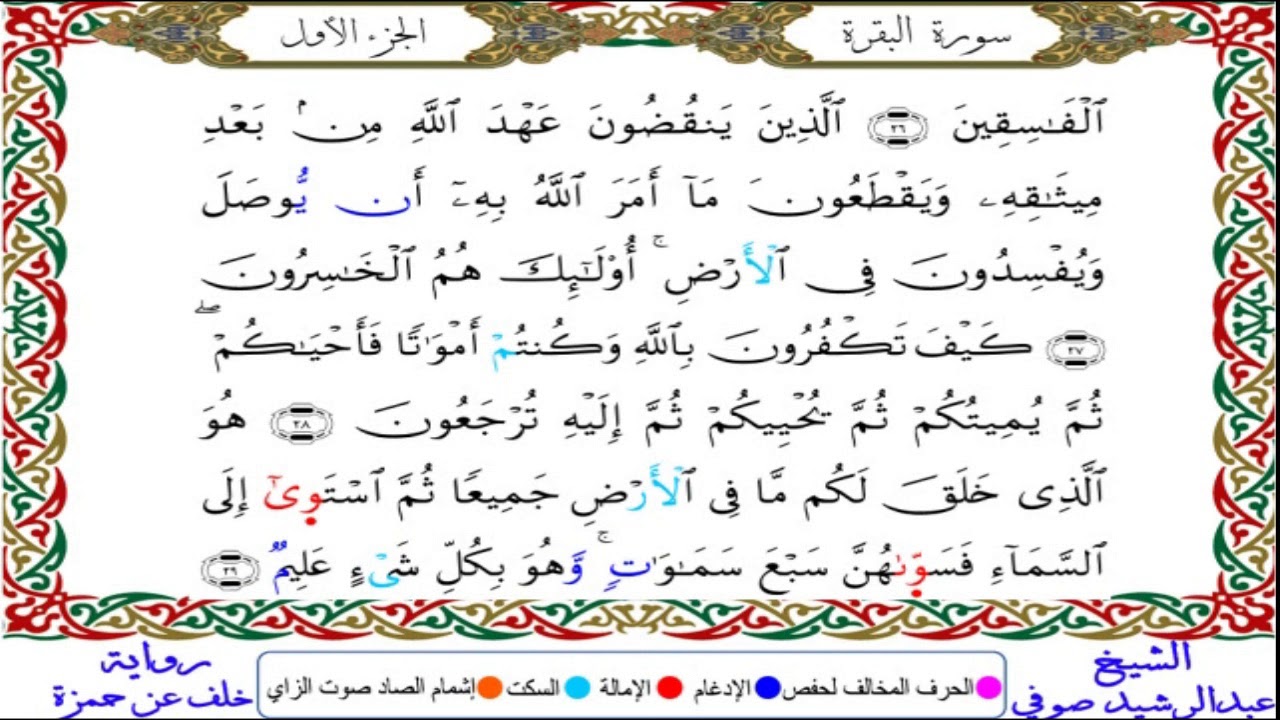 سورة البقرة
الجزء الأول
ٱلْفَٰسِقِينَ ٢٦ ٱلَّذِينَ يَنقُضُونَ عَهْدَ ٱللَّهِ مِنۢ بَعْدِ
مِيثَٰقِهِۦ وَيَقْطَعُونَ مَآ أَمَرَ ٱللَّهُ بِهِۦٓ أَن يُّوصَلَ
وَيُفْسِدُونَ فِى ٱلْأَرْضِ ۚ أُوْلَٰٓئِكَ هُمُ ٱلْخَٰسِرُونَ
٢٧ كَيْفَ تَكْفُرُونَ بِٱللَّهِ وَكُنتُمْ أَمْوَٰتًا فَأَحْيَٰكُمْ ۖ
ثُمَّ يُمِيتُكُمْ ثُمَّ يُحْيِيكُمْ ثُمَّ إِلَيْهِ تُرْجَعُونَ ٢٨ هُوَ
ٱلَّذِى خَلَقَ لَكُم مَّا فِى ٱلْأَرْضِ جَمِيعًا ثُمَّ ٱسْتَوِىٰٓ إِلَى
ٱلسَّمَآءِ فَسَوِّىٰهُنَّ سَبْعَ سَمَٰوَٰتٍ ۚ وَّهُوَ بِكُلِّ شَىْءٍ عَلِيمٌ ٢٩
الشيخ
عبدالرشيد صوفي
الحرف المخالف لحفص الإدغام الإمالة السكت إشمام الصاد صوت الزاي
رواية
خلف عن حمزة